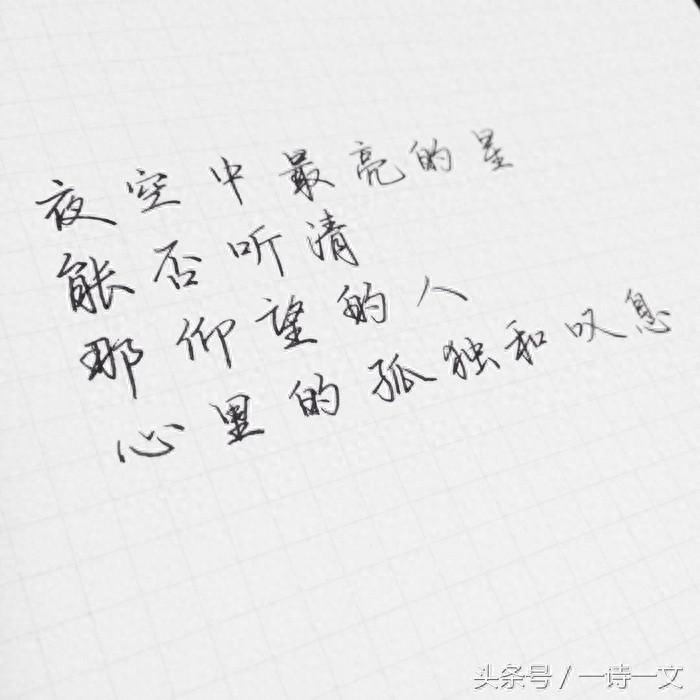 夜空中最亮的星
能否听清
那仰望的人
心里的孤独和叹息
头条号/一诗一文